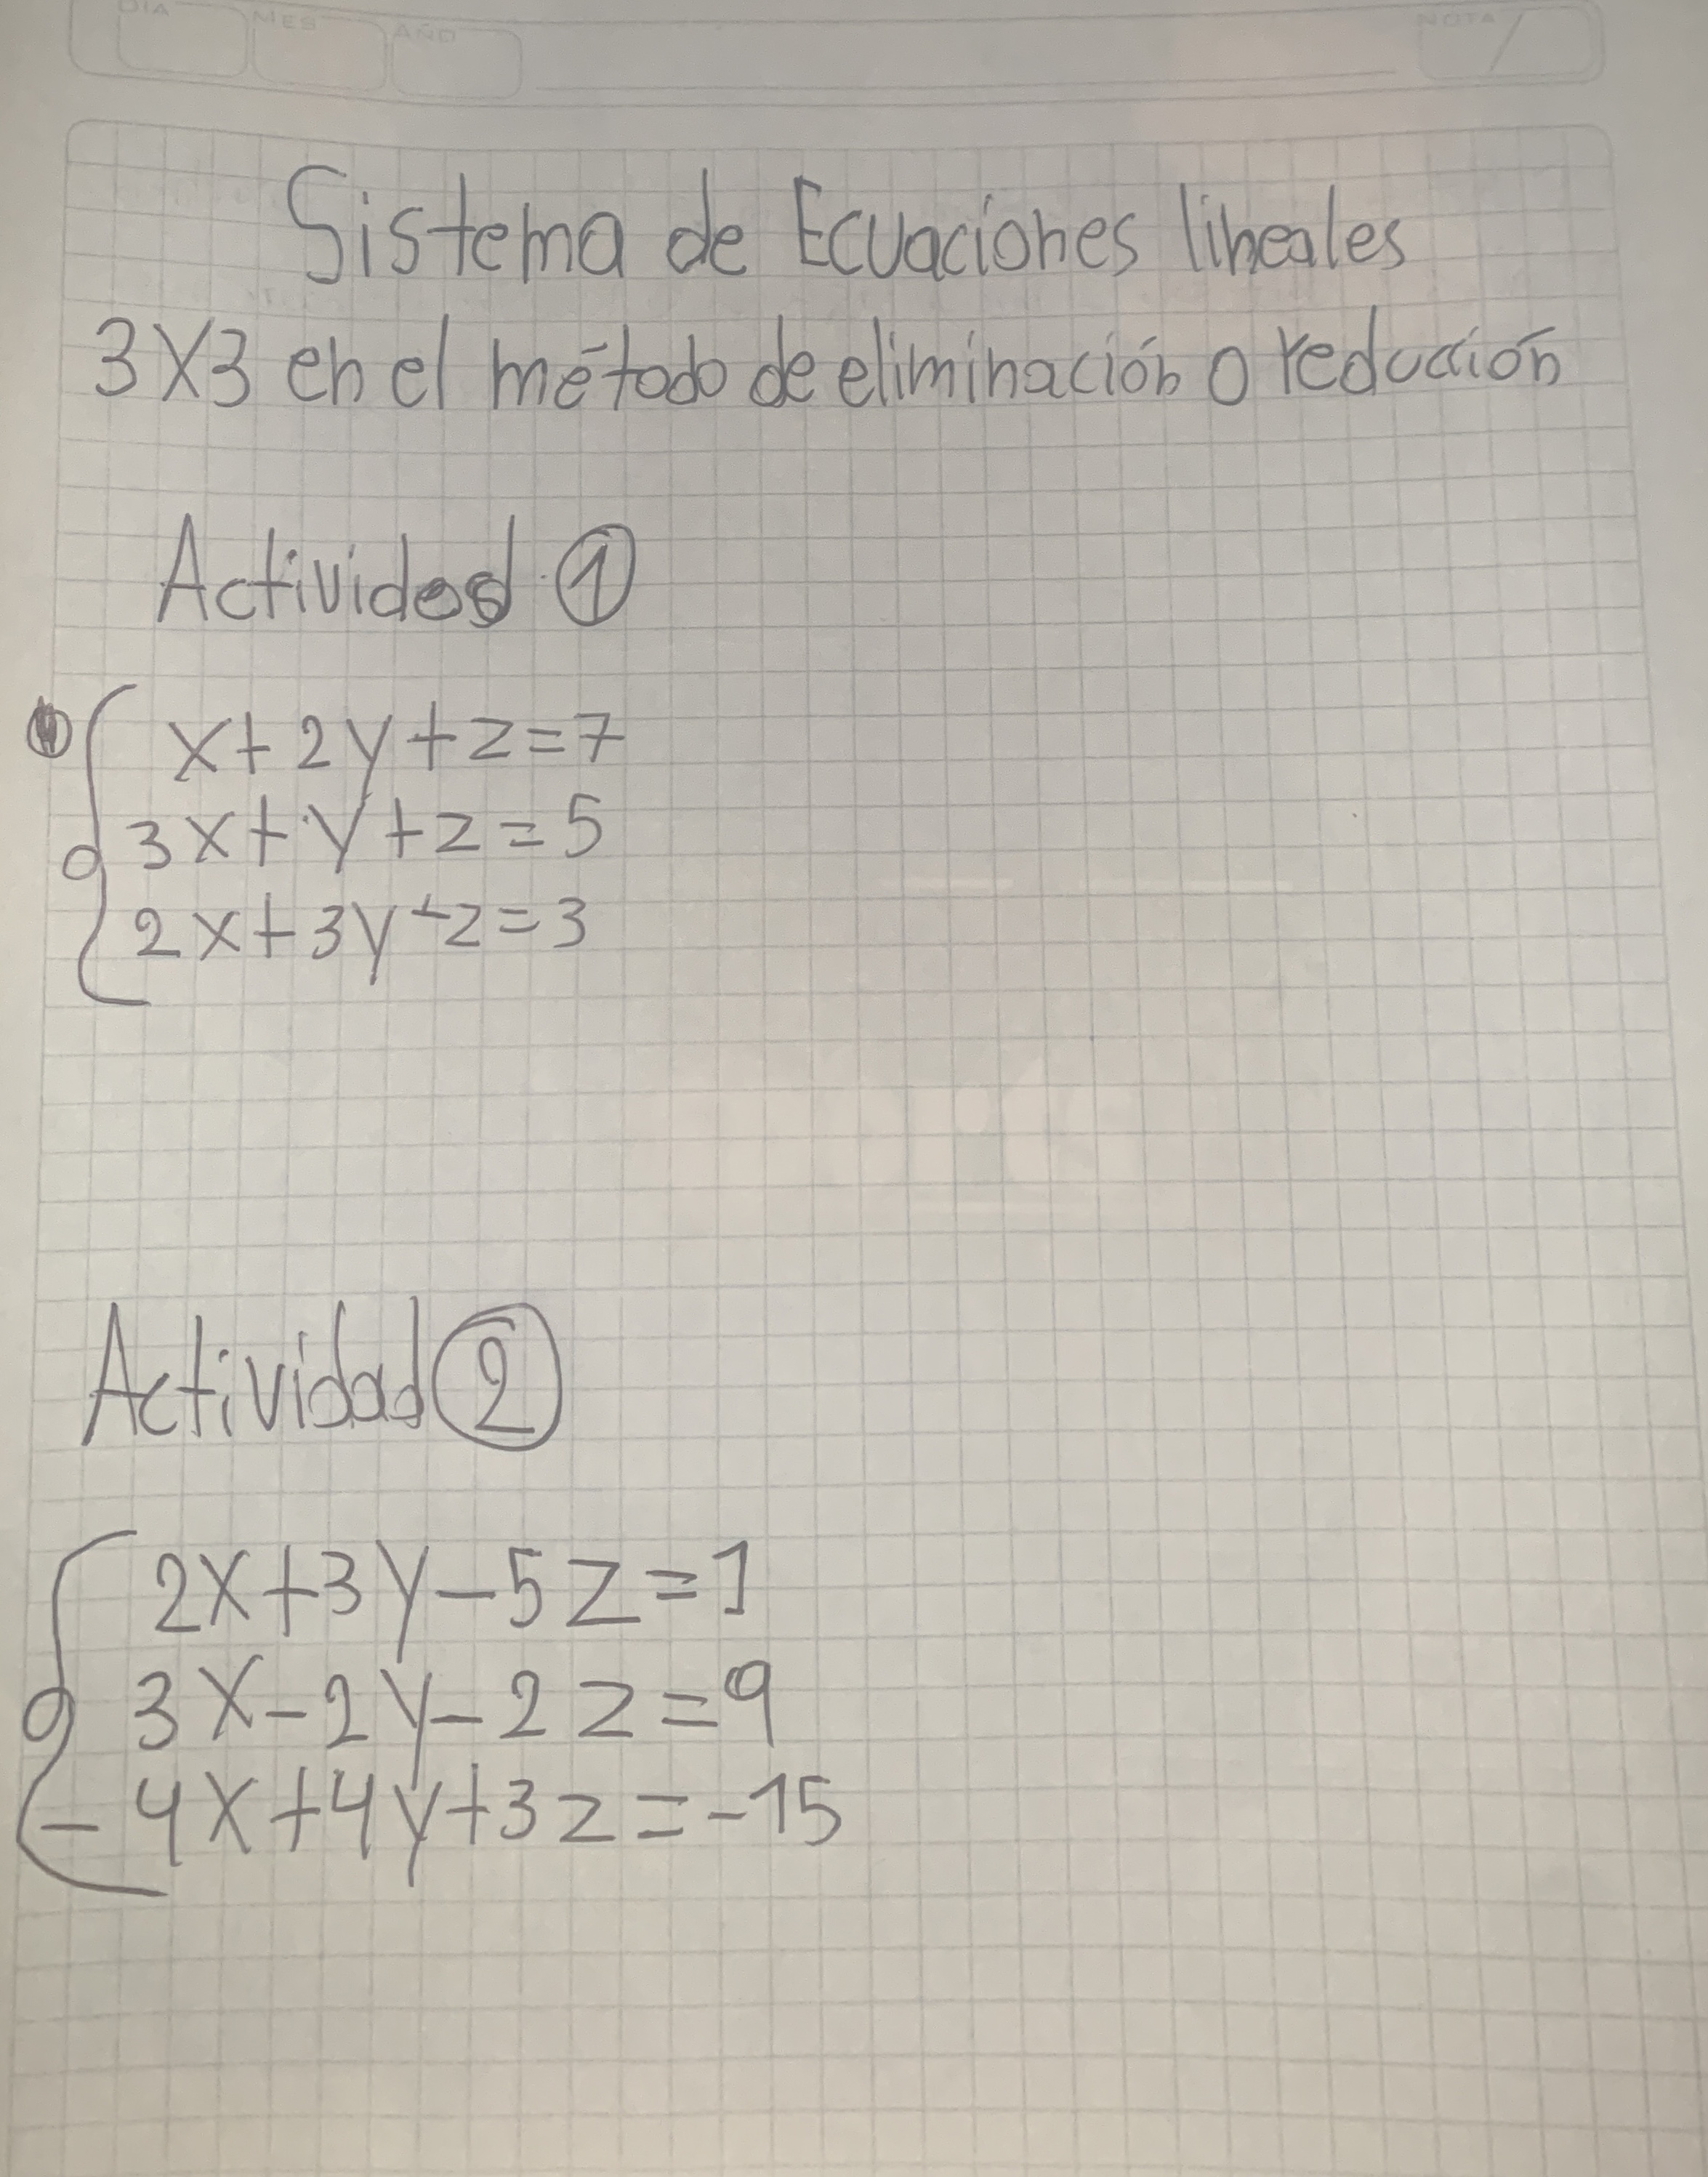 DIA MES AÑO NOTA
Sistema de Ecuaciones lineales
3X3 en el método de eliminación o reducción
Actividad ①
x+2y+z=7
3x+y+z=5
2x+3y+z=3
Actividad ②
2x+3y-5z=1
3x-2y-2z=9
-4x+4y+3z=-15